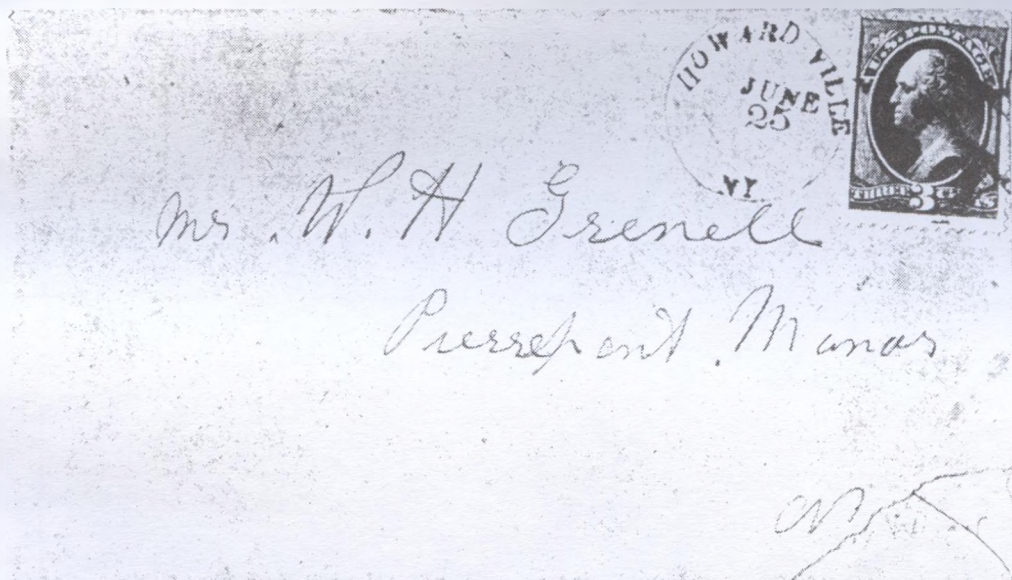 HOWARD VILLE
JUNE
25
NY
U.S. POSTAGE
THREE 3 CENTS
Mr. W. H Grenell
Pierrepont Manor
NY